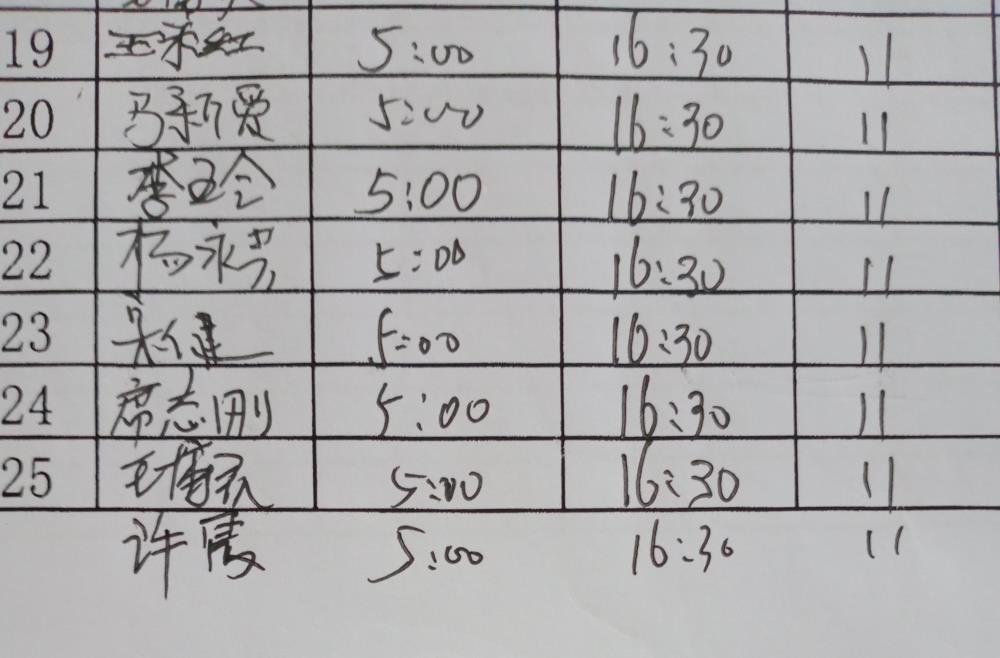 19 王采红 5:00 16:30 11
20 马新爱 5:00 16:30 11
21 李玉令 5:00 16:30 11
22 杨永芳 5:00 16:30 11
23 吴健 5:00 16:30 11
24 席志刚 5:00 16:30 11
25 5:00 16:30 11
许霞 5:00 16:30 11